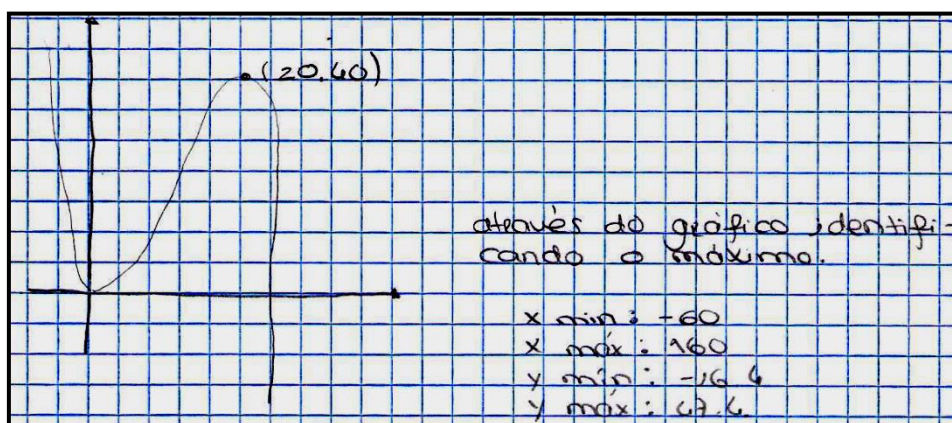 (20.40)
através do gráfico, identifi-
cando o máximo.
x min: -60
x máx: 160
y mín: -16.4
y máx: 47.4.